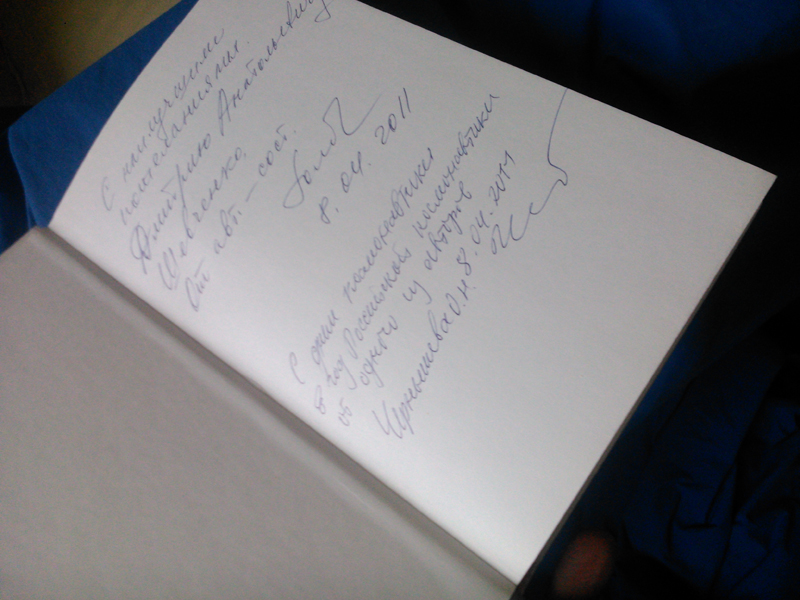 С наилучшими
пожеланиями
Дмитрию Анатольевичу
Шевченко,
От авт.-сост.
8.04.2011
С днем космонавтики
в год Российской космонавтики
от одного из авторов
О.Н. 8.04.2011